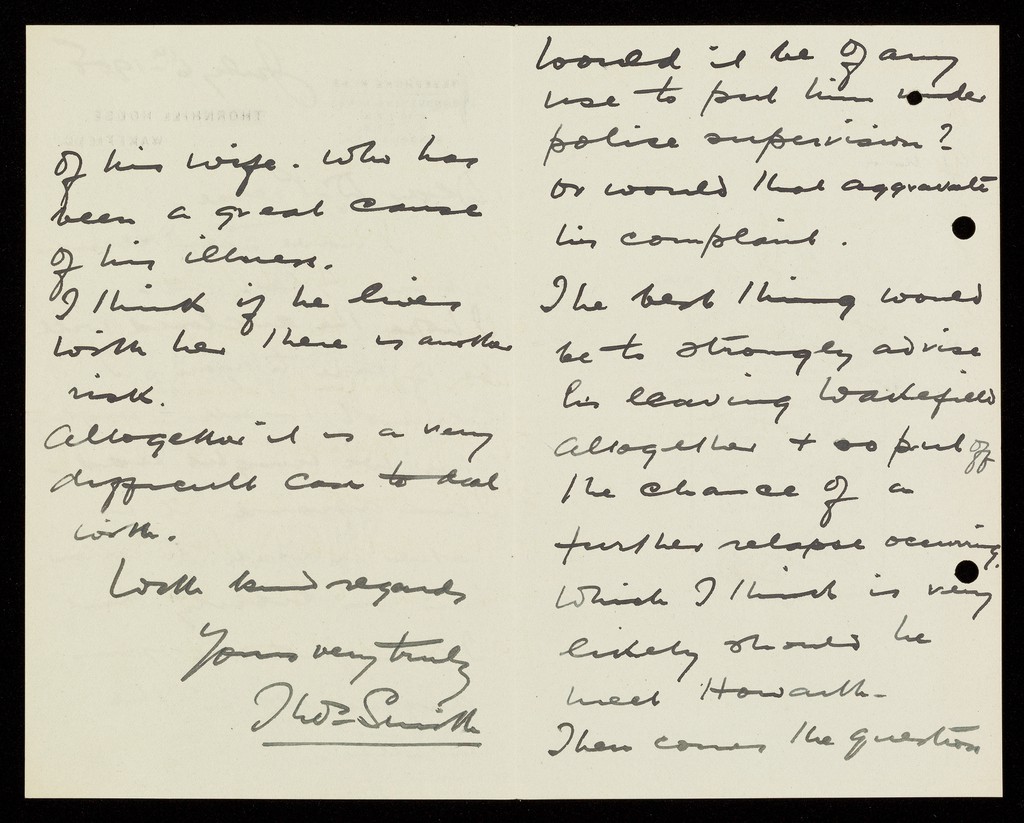 of his wife. who has
been a great cause
of his illness.
I think if he lives
with her there is another
risk.
Altogether it is a very
difficult case to deal
with.
With kind regards
Yours very truly
Thos Smith
Would it be of any
use to put him under
police supervision?
or would that aggravate
his complaint.
The best thing would
be to strongly advise
his leaving Wakefield
altogether + so put off
the chance of a
further relapse occurring.
Which I think is very
likely should he
meet Howarth -
Then comes the question
THORNHILL HOUSE,
WAKEFIELD.